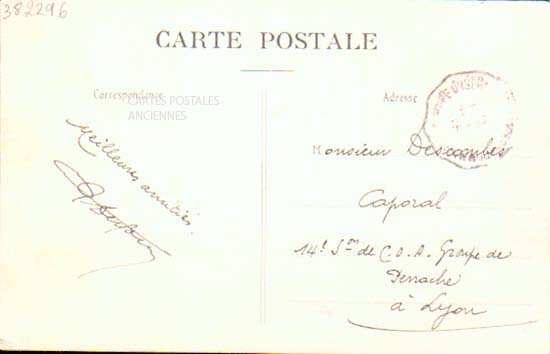 382296
CARTE POSTALE
Correspondance
CARTES POSTALES
ANCIENNES
Adresse
Meilleures amitiés.
Monsieur Descombes
Caporal
14e Son de C.O.A. Groupe de
Perrache
à Lyon